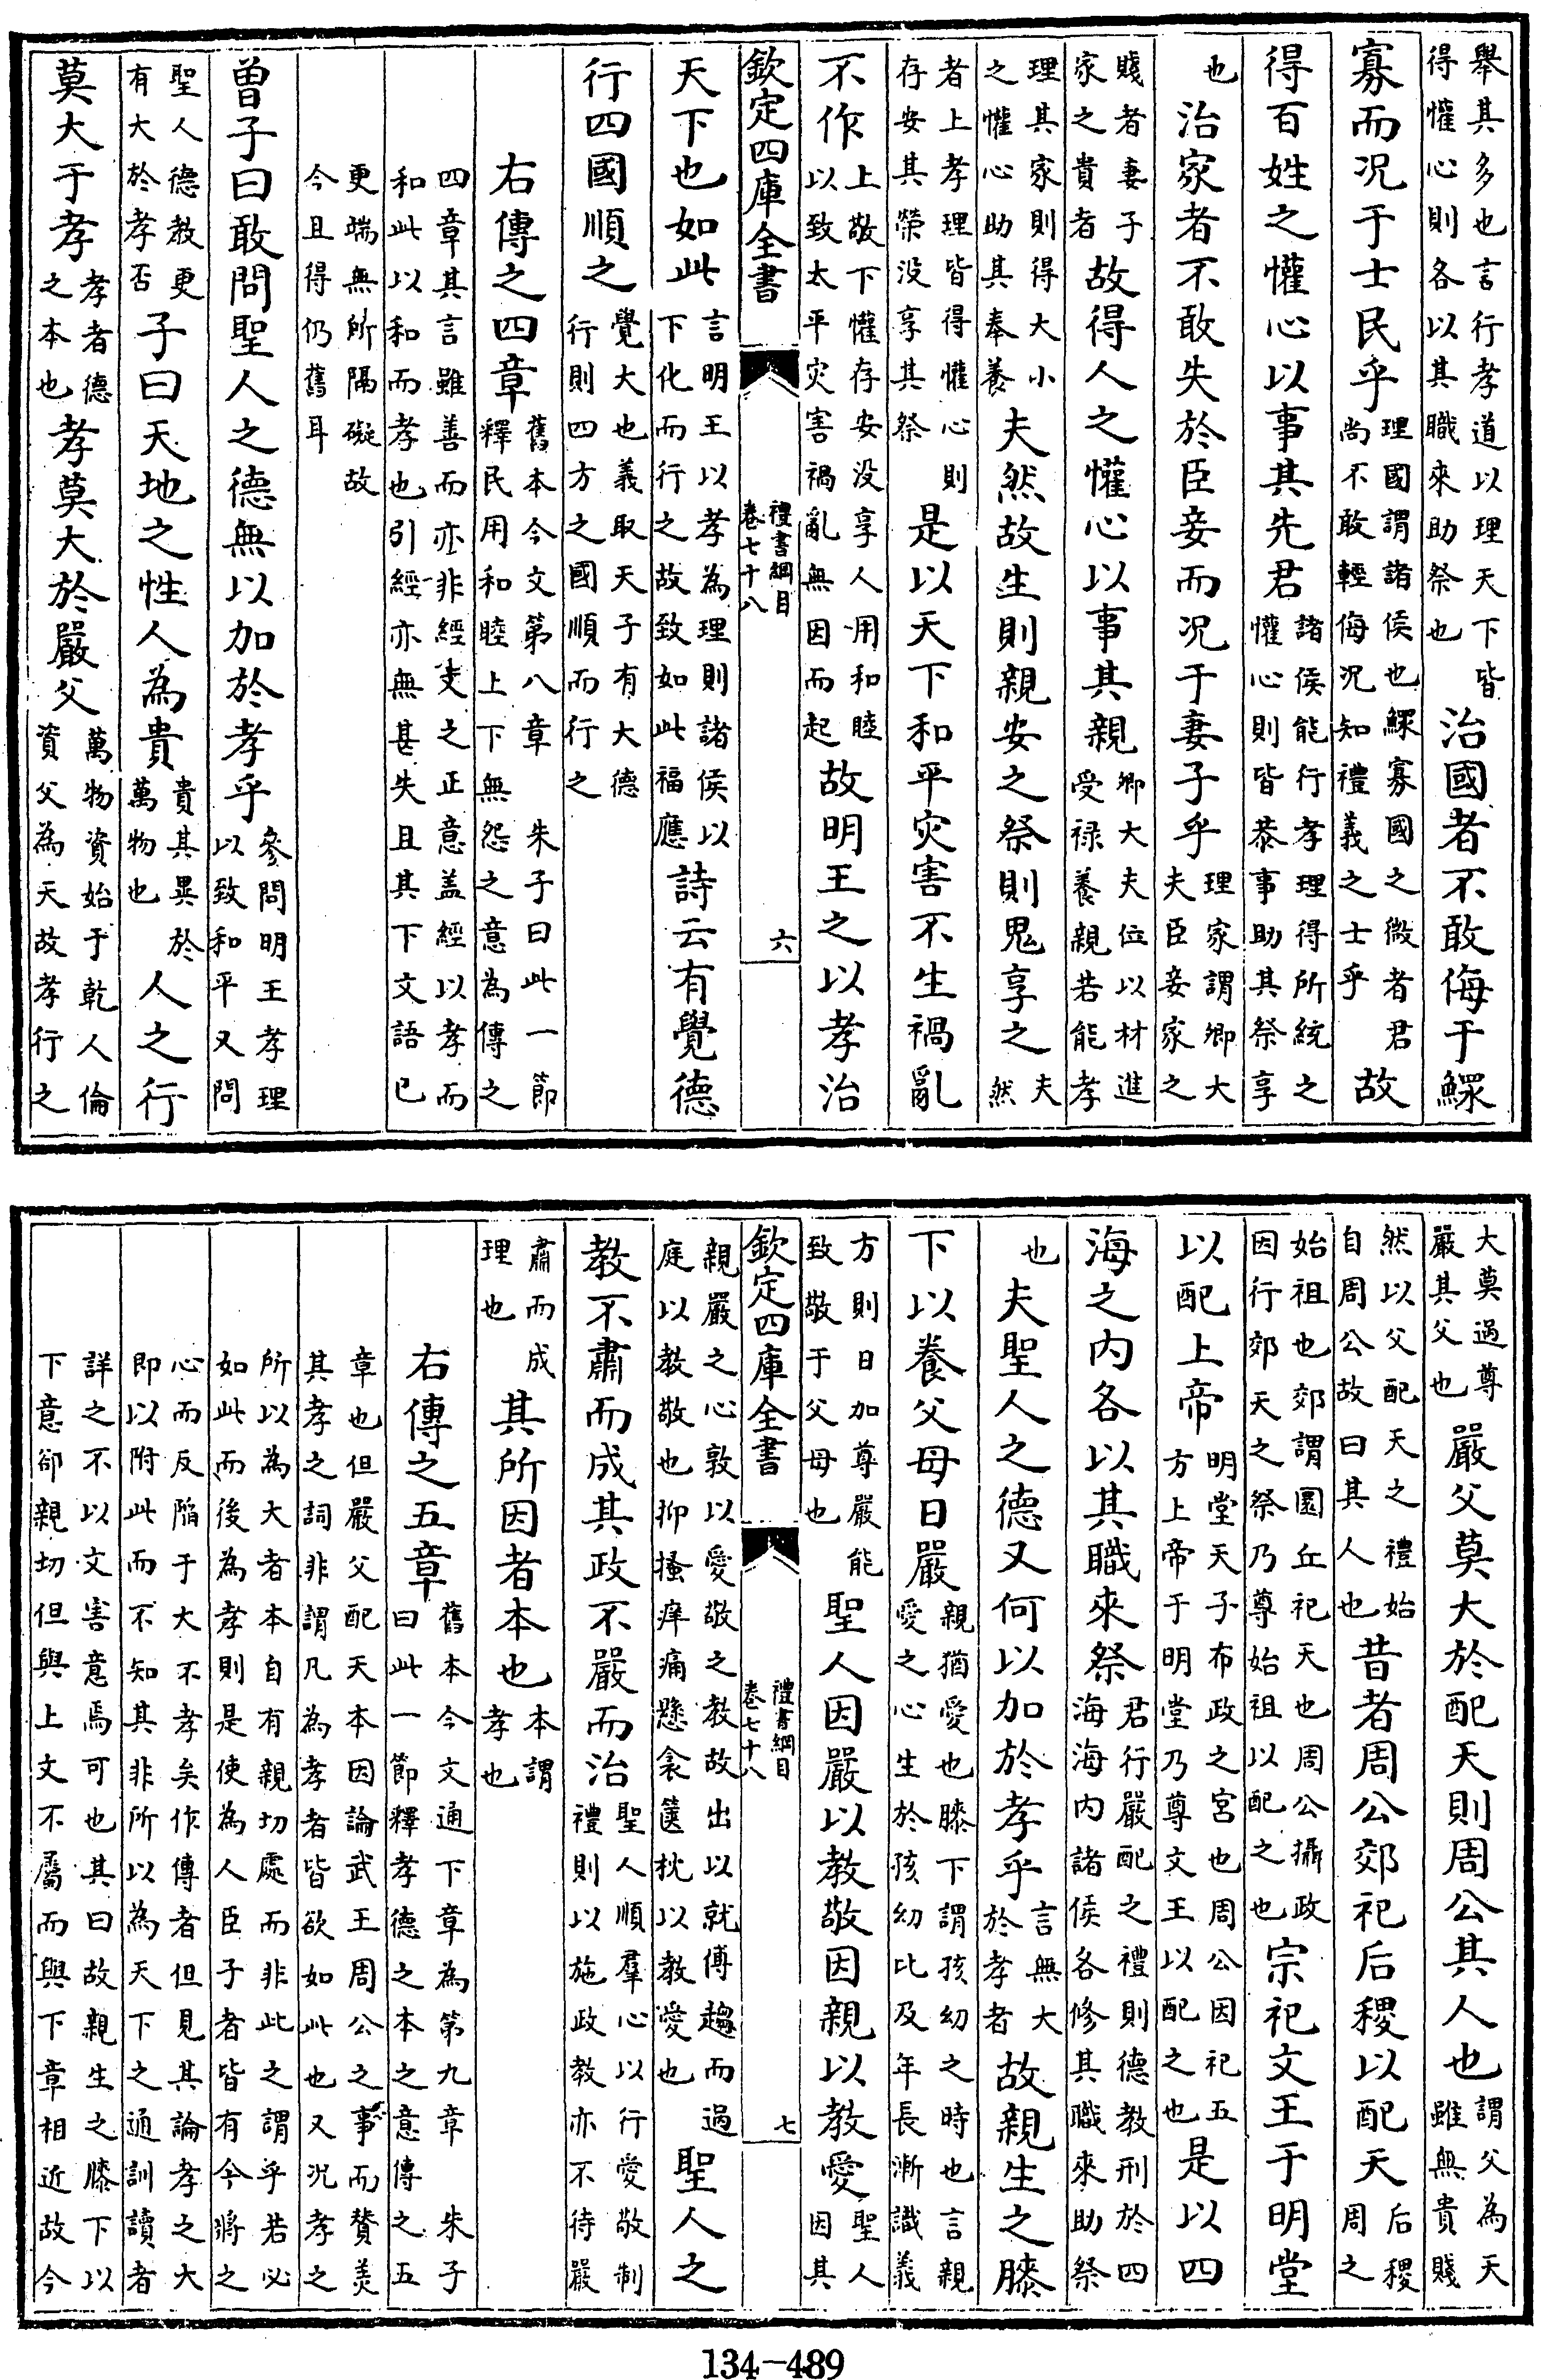 舉其多也言行孝道以理天下皆得懽心則各以其職來助祭也治國者不敢侮于鰥
寡而况于士民乎理國謂諸侯也鰥寡國之微者君尚不敢輕侮况知禮義之士乎故
得百姓之懽心以事其先君諸侯能行孝理得所統之懽心則皆恭事助其祭享
也治家者不敢失於臣妾而况于妻子乎理家謂卿大夫臣妾家之
賤者妻子家之貴者故得人之懽心以事其親卿大夫位以材進受禄養親若能孝
理其家則得大小之懽心助其奉養夫然故生則親安之祭則鬼享之夫然
者上孝理皆得懽心則存安其榮没享其祭是以天下和平灾害不生禍亂
不作上敬下懽存安没享人用和睦以致太平灾害禍亂無因而起故明王之以孝治
欽定四庫全書 禮書綱目 卷七十八 六
天下也如此言明王以孝為理則諸侯以下化而行之故致如此福應詩云有覺德
行四國順之覺大也義取天子有大德行則四方之國順而行之
右傳之四章舊本今文第八章 朱子曰此一節釋民用和睦上下無怨之意為傳之
四章其言雖善而亦非經文之正意盖經以孝而和此以和而孝也引經亦無甚失且其下文語已
更端無所隔礙故今且得仍舊耳
曾子曰敢問聖人之德無以加於孝乎參問明王孝理以致和平又問
聖人德教更有大於孝否子曰天地之性人為貴貴其異於萬物也人之行
莫大于孝孝者德之本也孝莫大於嚴父萬物資始于乾人倫資父為天故孝行之
大莫過尊嚴其父也嚴父莫大於配天則周公其人也謂父為天雖無貴賤
然以父配天之禮始自周公故曰其人也昔者周公郊祀后稷以配天后稷周之
始祖也郊謂圜丘祀天也周公攝政因行郊天之祭乃尊始祖以配之也宗祀文王于明堂
以配上帝明堂天子布政之宮也周公因祀五方上帝于明堂乃尊文王以配之也是以四
海之内各以其職來祭君行嚴配之禮則德教刑於四海海内諸侯各修其職來助祭
也夫聖人之德又何以加於孝乎言無大於孝者故親生之膝
下以養父母日嚴親猶愛也膝下謂孩幼之時也言親愛之心生於孩幼比及年長漸識義
方則日加尊嚴能致敬于父母也聖人因嚴以教敬因親以教愛聖人因其
欽定四庫全書 禮書綱目 卷七十八 七
親嚴之心敦以愛敬之教故出以就傅趨而過庭以教敬也抑搔痒痛懸衾篋枕以教愛也聖人之
教不肅而成其政不嚴而治聖人順羣心以行愛敬制禮則以施政教亦不待嚴
肅而成理也其所因者本也本謂孝也
右傳之五章舊本今文通下章為第九章 朱子曰此一節釋孝德之本之意傳之五
章也但嚴父配天本因論武王周公之事而贊美其孝之詞非謂凡為孝者皆欲如此也又况孝之
所以為大者本自有親切處而非此之謂乎若必如此而後為孝則是使為人臣子者皆有今將之
心而反陷于大不孝矣作傳者但見其論孝之大即以附此而不知其非所以為天下之通訓讀者
詳之不以文害意焉可也其曰故親生之膝下以下意卻親切但與上文不屬而與下章相近故今
134-489